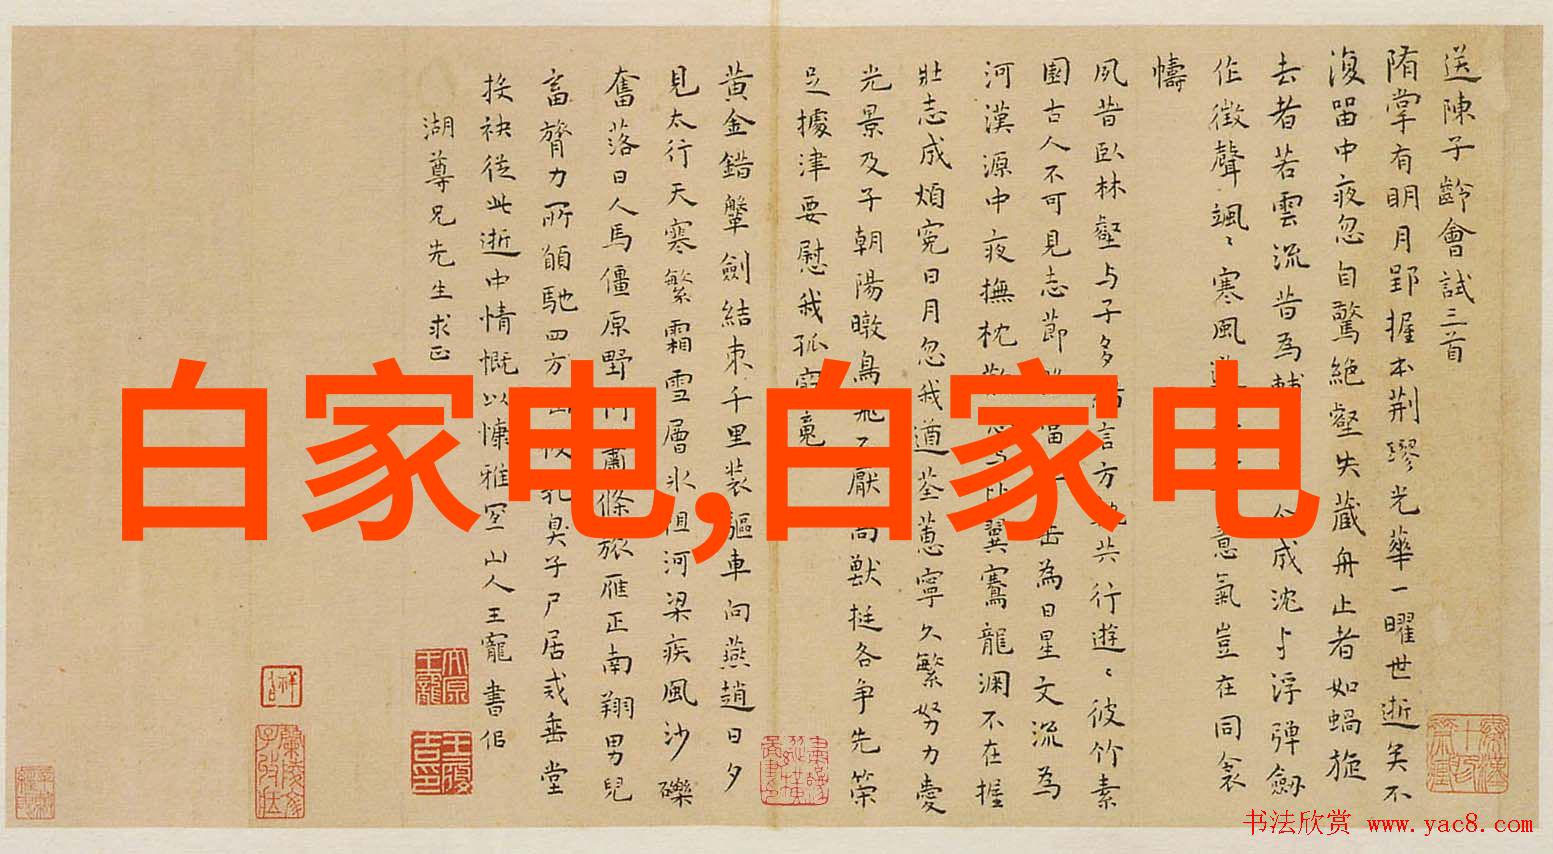 送陳子齡會試三首
隋掌有明月郢握本荆璆光華一曜世逝矣不
復留中夜忽自驚絶壑失藏舟止者如蝸旋
去者若雲流昔為 成沈与浮弾劔
作徵聲颯〻寒風 意氣豈在同衾
幬
夙昔臥林壑与子多 言方 共行遊〻彼竹素
園古人不可見志節 岳為日星文流為
河漢源中夜撫枕 比翼騫龍淵不在握
壯志成煩寃日月忽我遒荃蕙寧久繁努力愛
光景及子朝陽暾鳥飛不厭高獸挺各争先策
足據津要慰我孤
黄金錯鞶劍結束千里装驅車向燕趙日夕
見太行天寒繁霜雪層氷阻河梁疾風沙礫
奮落日人馬僵原野 蕭條旅雁正南翔男兒
畜膂力所願馳四方 乳臭子尸居戒垂堂
按袂從此逝中情慨以慷雅宜山人王寵書侣
湖尊兄先生求正
白家电,白家电
书法欣赏 www.yac8.com